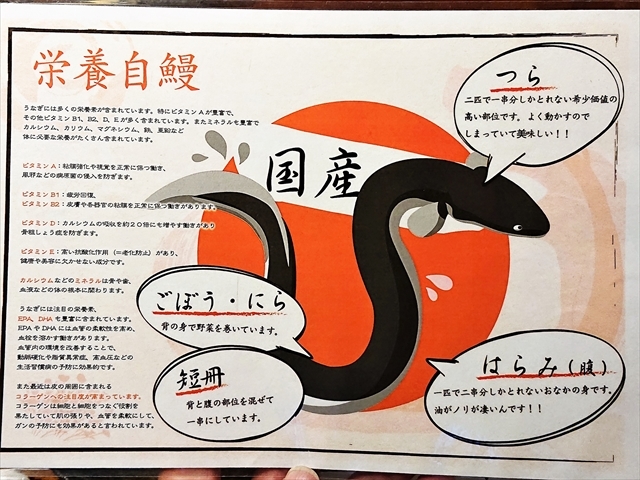 栄養自鰻
うなぎには多くの栄養素が含まれています。特にビタミンAが豊富で、
その他ビタミンB1、B2、D、Eが多く含まれています。またミネラルも豊富で
カルシウム、カリウム、マグネシウム、鉄、亜鉛など
体に必要な栄養がたくさん含まれています。
ビタミンA：粘膜強化や視覚を正常に保つ働き、
風邪などの病原菌の侵入を防ぎます。
ビタミンB1：疲労回復。
ビタミンB2：皮膚や各器官の粘膜を正常に保つ働きがあります。
ビタミンD：カルシウムの吸収を約20倍にも増やす働きがあり
骨粗しょう症を防ぎます。
ビタミンE：高い抗酸化作用（＝老化防止）があり、
健康や美容に欠かせない成分です。
カルシウムなどのミネラルは骨や歯、
血液などの体の根本に関わります。
うなぎには注目の栄養素、
EPA、DHAも豊富に含まれています。
EPAやDHAには血管の柔軟性を高め、
血栓を溶かす働きがあります。
血管内の環境を改善することで、
動脈硬化や脂質異常症、高血圧などの
生活習慣病の予防に効果的です。
また最近は皮の周囲に含まれる
コラーゲンへの注目度が高まっています。
コラーゲンは細胞と細胞をつなぐ役割を
果たしていて肌の張りや、血管を柔軟にして、
ガンの予防にも効果があると言われています。
国産
つら
二匹で一串分しかとれない希少価値の
高い部位です。よく動かすので
しまっていて美味しい！！
ごぼう・にら
背の身で野菜を巻いています。
短冊
背と腹の部位を混ぜて
一串にしています。
はらみ（腹）
一匹で二串分しかとれないおなかの身です。
油がノリが凄いんです！！